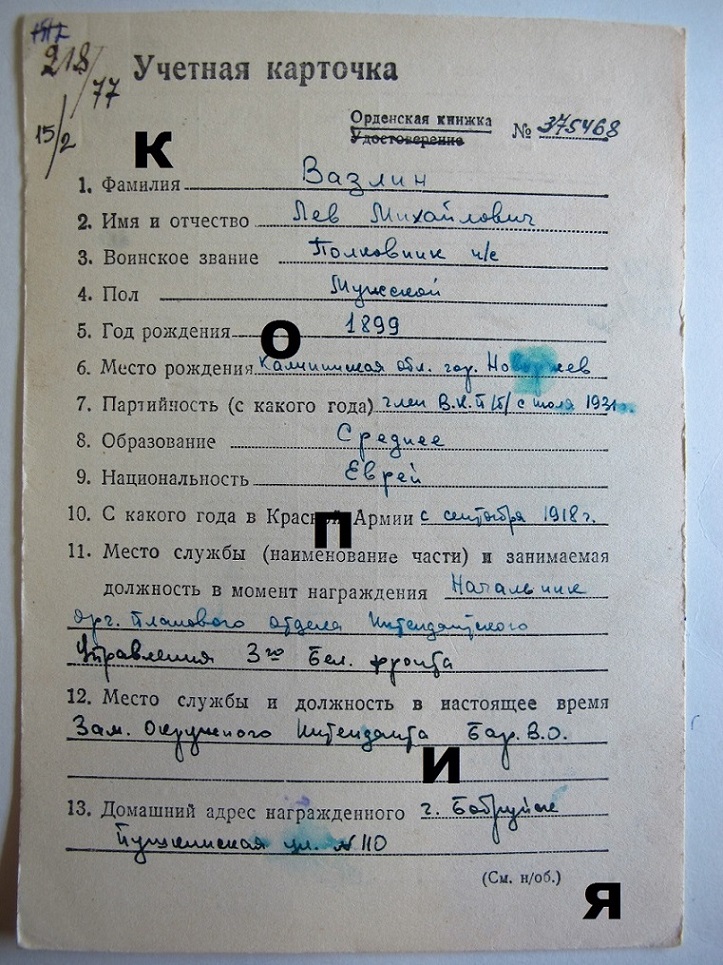 218/77
15/2
Учетная карточка
Орденская книжка
Удостоверение
№ 375468
К
1. Фамилия Вазлин
2. Имя и отчество Лев Михайлович
3. Воинское звание Полковник и/с
4. Пол Мужской
5. Год рождения 1899
О
6. Место рождения Калининская обл. гор. Новоржев
7. Партийность (с какого года) член В.К.П/б/ с июля 1931г.
8. Образование Среднее
9. Национальность Еврей
10. С какого года в Красной Армии с сентября 1918 г.
П
11. Место службы (наименование части) и занимаемая
должность в момент награждения Начальник
орг. планового отдела Интендантского
Управления 3го Бел. фронта
12. Место службы и должность в настоящее время
Зам. Окружного Интенданта Бар. В.О.
И
13. Домашний адрес награжденного г. Бобруйск
Пушкинская ул. № 110
(См. н/об.)
Я